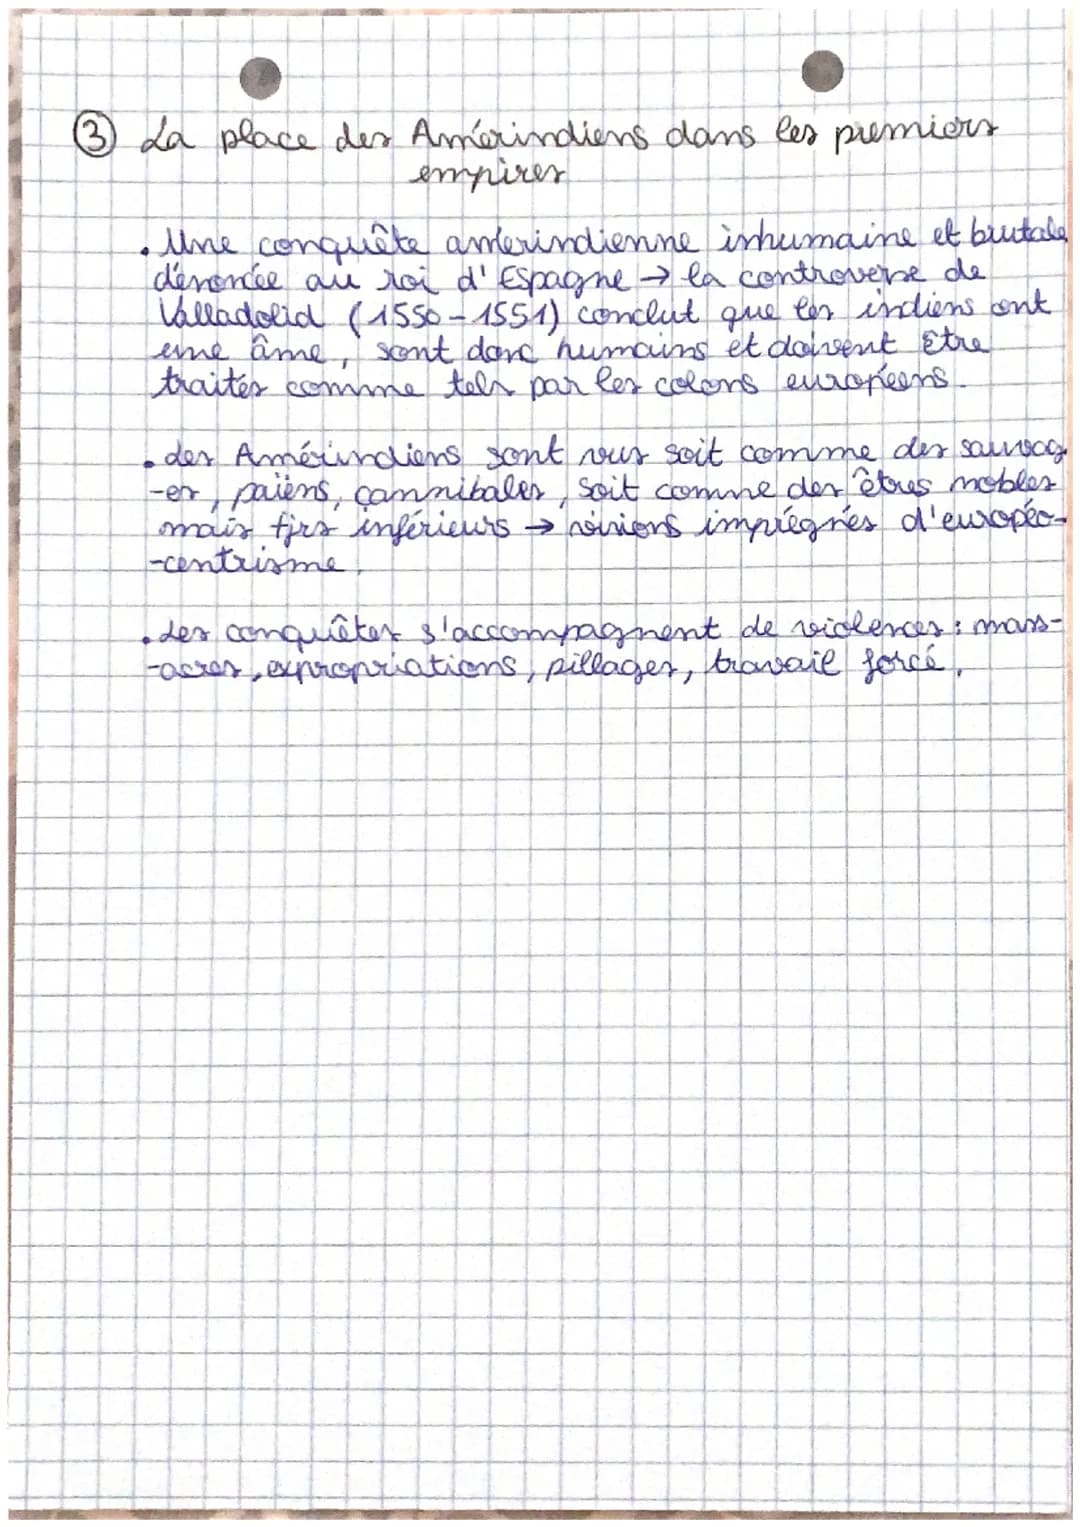 ③ La place des Amérindiens dans les premiers
empires
• Une conquête amérindienne inhumaine et brutale
dénoncée au roi d'Espagne → la controverse de
Valladolid (1550-1551) conclut que les indiens ont
une âme, sont donc humains et doivent être
traités comme tels par les colons européens.
• des Amérindiens sont vus soit comme des sauvag
-es, païens, cannibales, soit comme des êtres nobles
mais tjrs inférieurs → visions imprégnés d'européo-
-centrisme.
• Les conquêtes s'accompagnent de violences : mass-
-acres, expropriations, pillages, travail forcé.